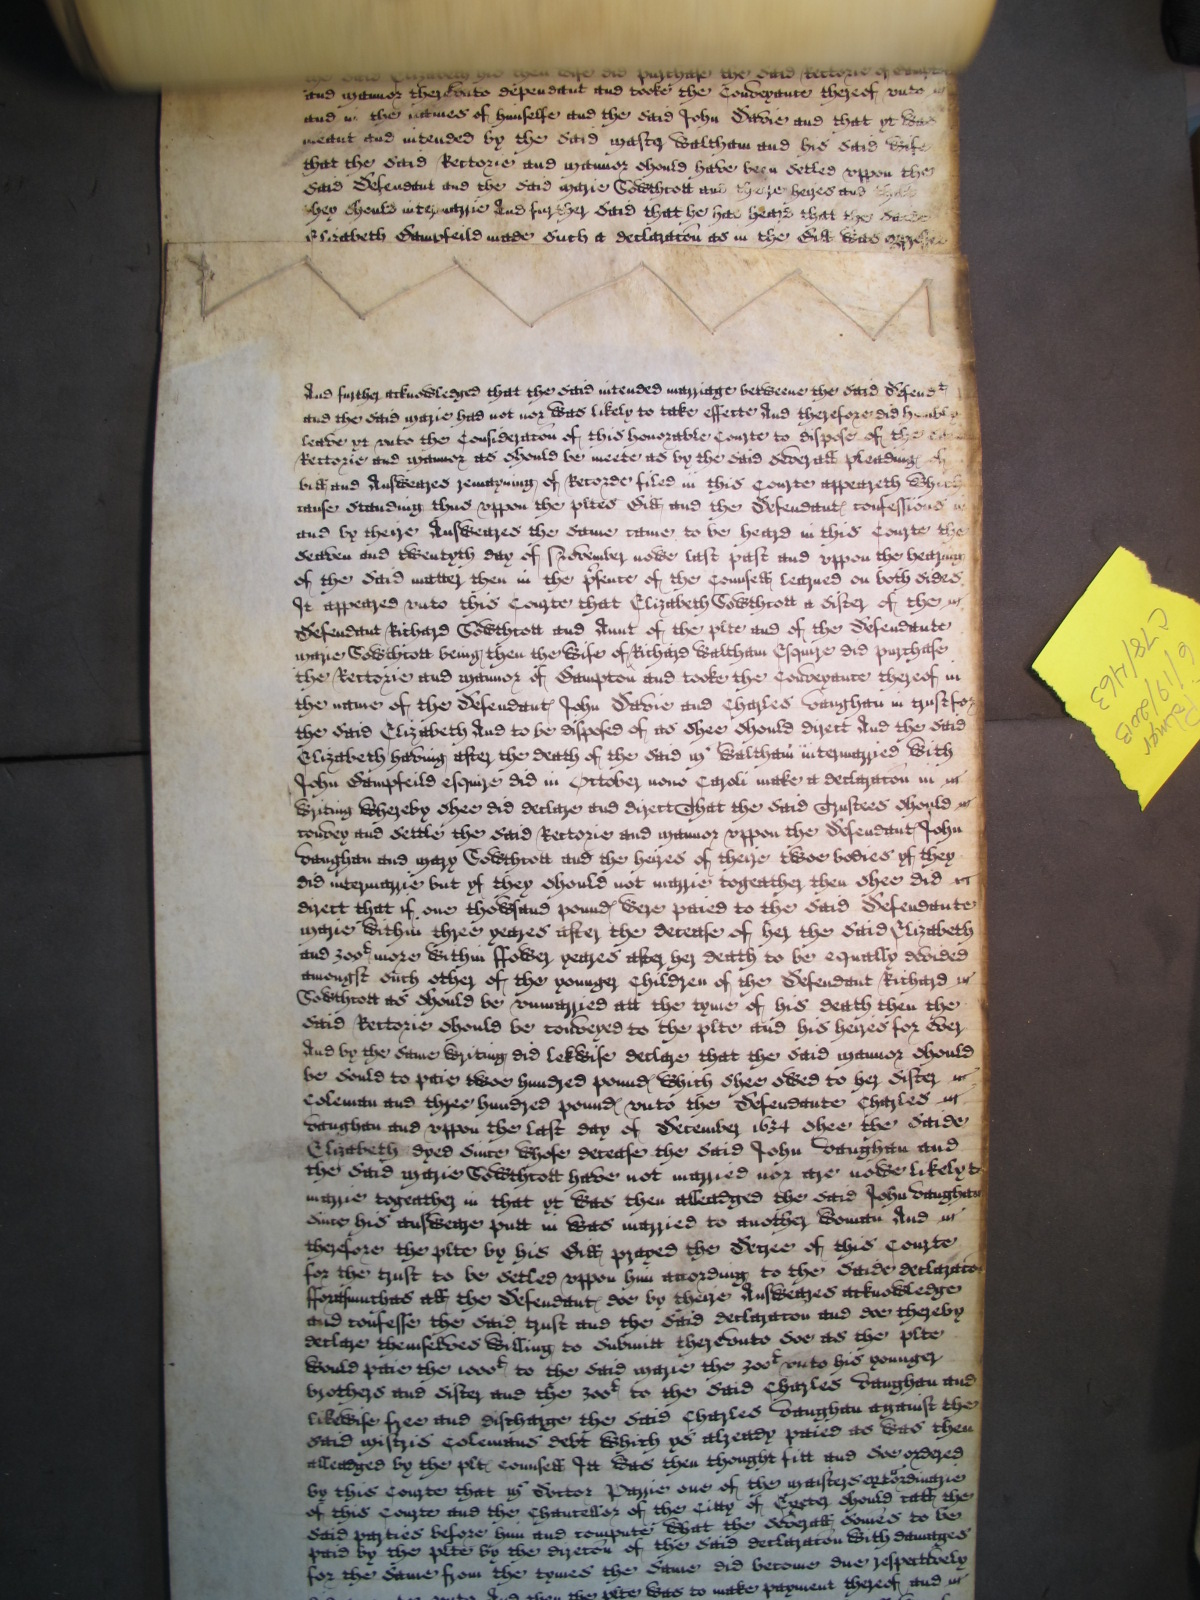 the said Elizabeth his then wife did purchase the said Rectorie of
and mannor therevnto dependant and tooke the Conveyance thereof vnto
and in the names of himselfe and the said John Davie and that yt was
meant and intended by the said master Waltham and his said wife
that the said Rectorie and mannor should have been setled vppon the
said Defendant and the said Marie Sowthcott and theire heires and
they should intermarrie And further said that he had heard that the said
Elizabeth Bampfeild made such a declaracon as in the Bill was
And further acknowledged that the said intended marriage betweene the said Defendt
and the said Marie had not nor was likely to take effecte And therefore did humbly
leave yt vnto the Consideracon of this honorable Courte to dispose of the
Rectorie and mannor as should be meete as by the said severall pleading
bill and Answeares remayning of Recorde filed in this Courte appeareth Which
cause standing thus vppon the pltes Bill and the Defendant confessions
and by theire Answeares the same came to be heard in this Courte the
seaven and twentyth day of November nowe last past and vppon the hearing
of the said matter then in the psence of the Counsell learned on both sides
It appeared vnto this Courte that Elizabeth Sowthcott a sister of the
Defendant Richard Sowthcott and Aunt of the plte and of the Defendante
Marie Sowthcott being then the wife of Richard Waltham Esquire did purchase
the Rectorie and mannor of Bampton and tooke the Conveyance thereof in
the name of the Defendant John Davie and Charles Vaughan in trust for
the said Elizabeth And to be disposed of as shee should direct And the said
Elizabeth having after the death of the said mr Waltham intermarried with
John Bampfeild esquire did in October nono Caroli make a declaracon in
writing whereby shee did declare and direct That the said Trustees should
convey and settle the said Rectorie and mannor vppon the Defendant John
Vaughan and Mary Sowthcott and the heires of theire twoe bodies yf they
did intermarrie but yf they should not marrie togeather then shee did
direct that if one thowsand pound were paied to the said Defendante
Marie within three yeares after the decease of her the said Elizabeth
and 300l more within ffower yeares after her death to be equally devided
amongst such other of the younger Children of the Defendant Richard
Sowthcott as should be vnmarried att the tyme of his death then the
said Rectorie should be conveyed to the plte and his heires for ever
And by the same writing did lekwise declare that the said mannor should
be sould to paie twoe hundred pound which shee owed to her sister
Coleman and three hundred pound vnto the Defendante Charles
Vaughan and vppon the last day of December 1634 shee the saide
Elizabeth dyed since whose decease the said John Vaughan and
the said Marie Sowthcott have not married nor are nowe likely to
marrie togeather in that yt was then alleadged the said John Vaughan
since his answeare putt in was married to another woman And
therefore the plte by his Bill prayed the Decree of this Courte
for the trust to be setled vppon him according to the saide declaracon
fforasmuchas all the Defendant doe by theire Answeares acknowledge
and confesse the said trust and the said declaracon and doe thereby
declare themselves willing to submitt therevnto soe as the plte
would paie the 1000l to the said Marie the 300l vnto his younger
brothers and sister and the 300l to the said Charles Vaughan and
likewise free and discharge the said Charles Vaughan against the
said mistris Colemans debt which ys already paied as was then
alleadged by the plt Counsell Itt was then thought fitt and soe ordered
by this Courte that mr Doctor Parrie one of the maisters extordinarie
of this Courte and the Chancellor of the Citty of Exeter should call the
said parties before him and compute what the severall somes to be
paid by the plte by the direcon of the said declaracon with damages
for the same from the tymes the same did become due respectively
And then the plte was to make payment thereof and
Palmer
6/19/2013
C78/463